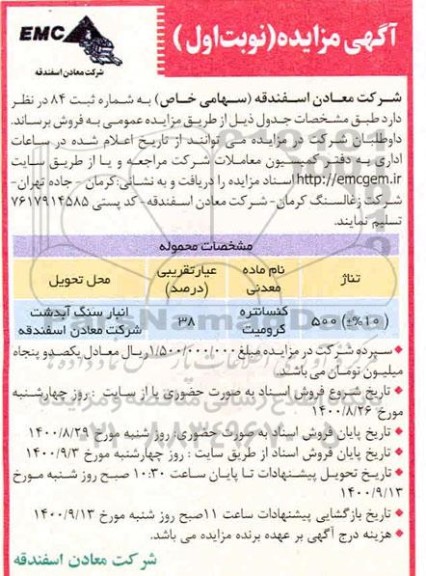 آگهی مزایده(نوبت اول)
EMC
شرکت معادن اسفندقه
شرکت معادن اسفندقه (سهامی خاص) به شماره ثبت ۸۴ در نظر
دارد طبق مشخصات جدول ذیل از طریق مزایده عمومی به فروش برساند.
داوطلبان شرکت در مزایده می توانند از تاریخ اعلام شده در ساعات
اداری به دفتر کمیسیون معاملات شرکت مراجعه و یا از طریق سایت
http://emcgem.ir اسناد مزایده را دریافت و به نشانی: کرمان - جاده تهران-
شرکت زغالسنگ کرمان- شرکت معادن اسفندقه - کد پستی ۷۶۱۷۹۱۴۵۸۵
تسلیم نمایند.
مشخصات محموله
تناژ
نام ماده معدنی
عیارتقریبی (درصد)
محل تحویل
۵۰۰ (۱۰%±)
کنسانتره کرومیت
۳۸
انبار سنگ آبدشت شرکت معادن اسفندقه
♦ سپرده شرکت در مزایده مبلغ ۱/۵۰۰/۰۰۰/۰۰۰ ریال معادل یکصدو پنجاه
میلیون تومان می باشد.
♦ تاریخ شروع فروش اسناد به صورت حضوری یا از سایت : روز چهارشنبه
مورخ ۱۴۰۰/۸/۲۶
♦ تاریخ پایان فروش اسناد به صورت حضوری: روز شنبه مورخ ۱۴۰۰/۸/۲۹
♦ تاریخ پایان فروش اسناد از طریق سایت : روز چهارشنبه مورخ ۱۴۰۰/۹/۳
♦ تاریخ تحویل پیشنهادات تا پایان ساعت ۱۰:۳۰ صبح روز شنبه مورخ
۱۴۰۰/۹/۱۳
♦ تاریخ بازگشایی پیشنهادات ساعت ۱۱صبح روز شنبه مورخ ۱۴۰۰/۹/۱۳
♦ هزینه درج آگهی بر عهده برنده مزایده می باشد.
شرکت معادن اسفندقه